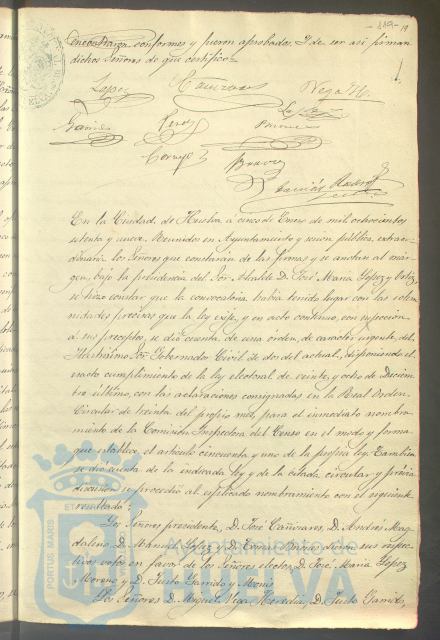 encontraron conformes y fueron aprobadas. Y de ser así firman
dichos Señores de que certifico=
Lopez Cañizares Vega
Garrido Perez
Cornejo Bravo
En la Ciudad de Huelva á cinco de Enero de mil ochocientos
setenta y nueve. Reunidos en Ayuntamiento y sesion pública, extraor-
dinaria los Señores que constarán de las firmas y se anotan al már-
gen, bajo la presidencia del Sor. Alcalde D. José Maria Lopez y Ortiz,
se hizo constar que la convocatoria habia tenido lugar con las solem-
nidades precisas que la ley exije, y en acto continuo, con sujecion
á sus preceptos se dió cuenta de una órden, de carácter urgente, del
Ilustrísimo Sor. Gobernador Civil de dos del actual, disponiendo el
exacto cumplimiento de la ley electoral de veinte y ocho de Diciem-
bre último, con las aclaraciones consignadas en la Real Orden
Circular de treinta del propio mes, para el inmediato nombra-
miento de la Comision Inspectora del Censo en el modo y forma
que establece el artículo cincuenta y uno de la propia ley. Tambien
se dió cuenta de la indicada ley y de la citada circular y prévia
discusion se procedió al esplicado nombramiento con el siguiente
resultado:
Los Señores presidente, D. José Cañizares, D. Andrés Mag-
daleno, D. Manuel Garcia, D. dieron sus respec-
tivos votos en favor de los Señores electores D. José Maria Lopez
Moreno y D. Justo Garrido y Monis
Los Señores D. Miguel Vega, Heredia, D. Justo Garrido,
PORTUS MARIS
Ayuntamiento de
HUELVA